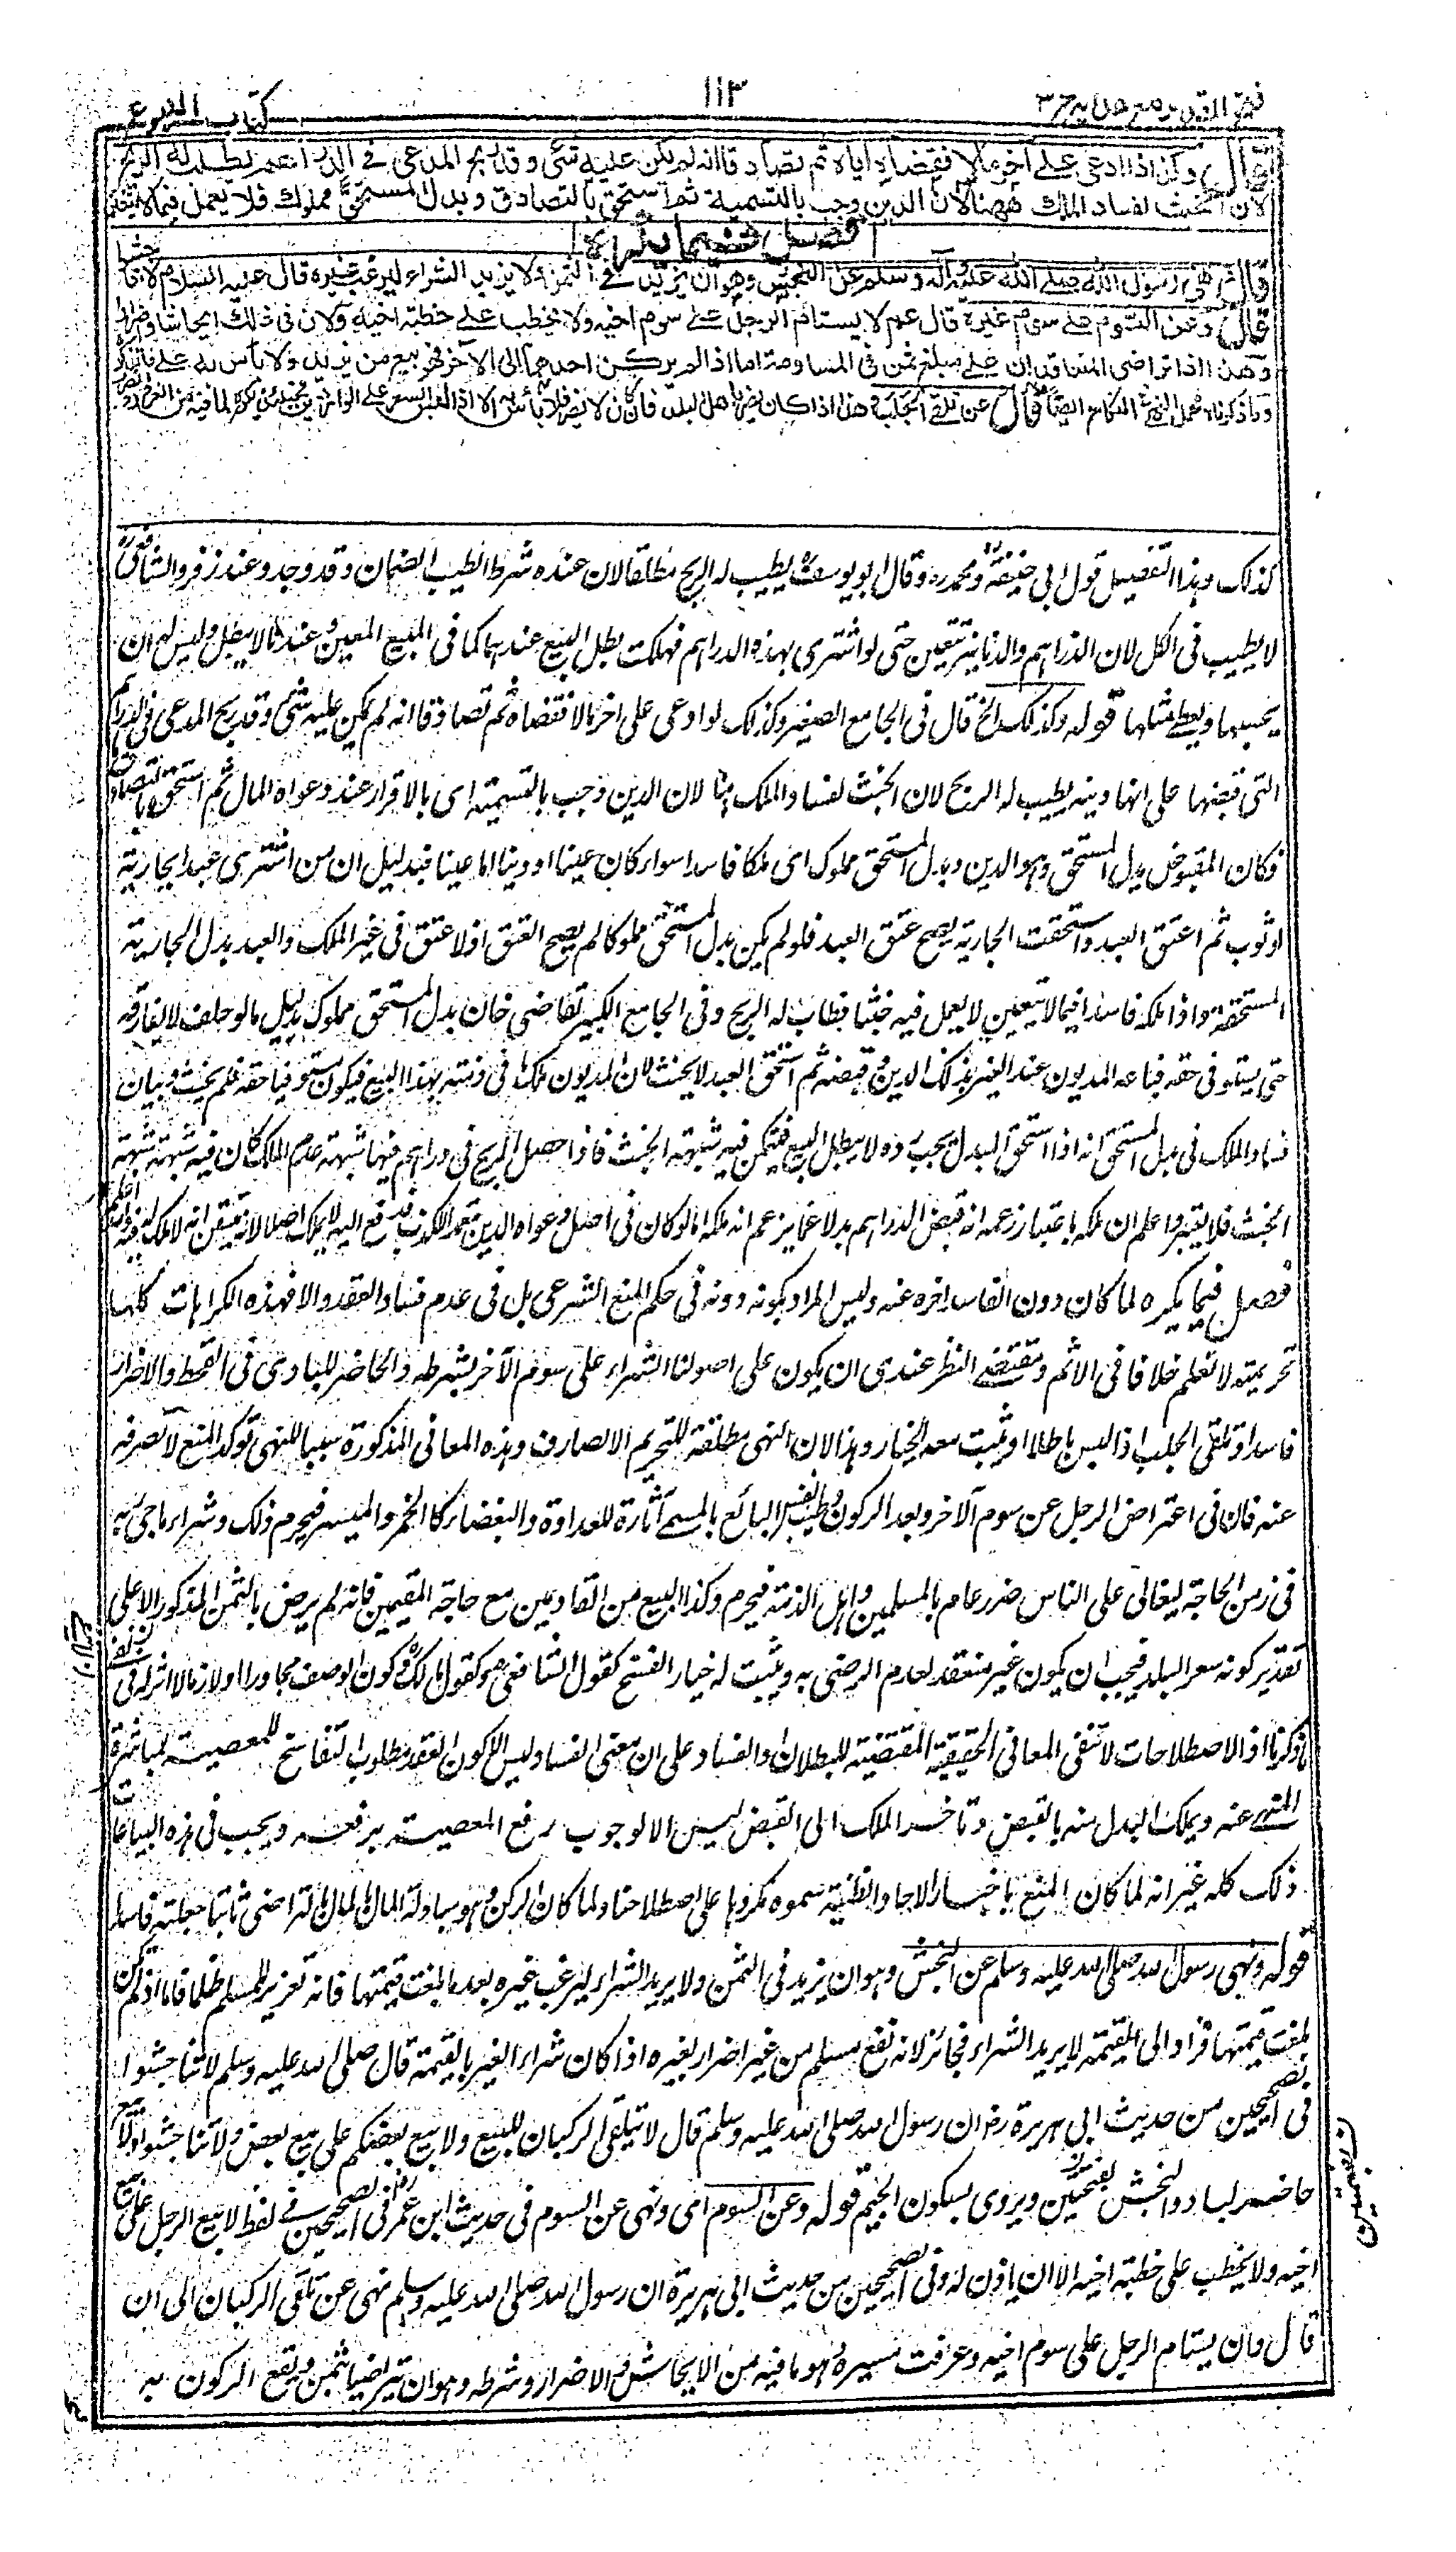 فتح القدير مع هدايه ج ٣
١١٣
كتاب البيوع
قال وكذا اذا ادعى على اخر مالا فقضاه اياه ثم تصادقا انه لم يكن عليه شئ وقد ربح المدعى في الدراهم يطيب له الربح
لان الخبث لفساد الملك ههنا لان الدين وجب بالتسمية ثم استحق بالتصادق وبدل المستحق مملوك فلا يعمل فيما لا يتعين
فصل فيما يكره
قال ونهى رسول الله صلى الله عليه وآله وسلم عن النجش وهو ان يزيد في الثمن ولا يريد الشراء ليرغب غيره قال عليه السلام لا تناجشوا
قال وعن السوم على سوم غيره قال عم لا يستام الرجل على سوم اخيه ولا يخطب على خطبة اخيه ولان في ذلك ايحاشا واضرارا
وهذا اذا تراضى المتعاقدان على مبلغ ثمن في المساومة اما اذا لم يركن احدهما الى الآخر فهو بيع من يزيد ولا بأس به على ما نذكره
وما ذكرناه محمل النهي في النكاح ايضا قال وعن تلقى الجلب وهذا اذا كان يضر باهل البلد فان كان لا يضر فلا بأس به الا اذا لبس السعر على الواردين فحينئذ يكره لما فيه من الغرر والضرر
كذلك وهذا التفصيل قول ابى حنيفة ومحمد ره وقال ابو يوسف يطيب له الربح مطلقا لان عنده شرط الطيب الضمان وقد وجد وعند زفر والشافعى ره
لا يطيب فى الكل لان الدراهم والدنانير تتعين حتى لو اشترى بهذه الدراهم فهلكت بطل البيع عندهما كما فى المبيع المعين وعندنا لا يبطل وليس له ان
يحبسها ويعطى مثلها قوله وكذلك الخ قال فى الجامع الصغير وكذلك لو ادعى على اخر مالا فقضاه ثم تصادقا انه لم يكن عليه شئ وقد ربح المدعى فى الدراهم
التى قبضها على انها دينه يطيب له الربح لان الخبث لفساد الملك هنا لان الدين وجب بالتسمية اى بالاقرار عند دعواه المال ثم استحق بالتصادق
فكان المقبوض بدل المستحق وهو الدين وبدل المستحق مملوك اى ملكا فاسدا سواء كان عينا او دينا اما عينا فبدليل ان من اشترى عبدا بجارية
او ثوب ثم اعتق العبد واستحقت الجارية يصح عتق العبد فلو لم يكن بدل المستحق مملوكا لم يصح العتق اذ لا عتق فى غير الملك والعبد بدل الجارية
المستحقة واذا ملكه فاسدا فيما لا يتعين لا يعمل فيه خبثا فطاب له الربح وفى الجامع الكبير لقاضى خان بدل المستحق مملوك بدليل ما لو حلف لا يفارقه
حتى يستوفى حقه فباعه المديون عبد الغير بذلك الدين وقبضه ثم استحق العبد لا يحنث لان المديون ملك ما فى ذمته بهذا البيع فيكون مستوفيا حقه فلم يحنث وبيان
فساد الملك فى بدل المستحق انه اذا استحق البدل يجب رده لا يبطل البيع فيتمكن فيه شبهة الخبث فاذا حصل الربح فى دراهم فيها شبهة عدم الملك كان فيه شبهة شبهة
الخبث فلا يعتبر واعلم ان ملكه باعتبار زعمه انه قبض الدراهم بدلا عما يزعم انه ملكه اما لو كان فى اصل دعواه الدين متعمد الكذب فدفع اليه لا يملك اصلا لانه متيقن انه لا ملك له فيه والله اعلم
فصل فيما يكره لما كان دون الفاسد اخره عنه وليس المراد بكونه دونه فى حكم المنع الشرعى بل فى عدم فساد العقد والا فهذه الكراهات كلها
تحريمية لا نعلم خلافا فى الاثم ومقتضى النظر عندى ان يكون على اصولنا الشراء على سوم الآخر بشرطه والحاضر للبادى فى القحط والاضرار
فاسدا وتلقى الجلب اذا لبس باطلا او يثبت معه الخيار وهذا لان النهى مطلقه للتحريم الا لصارف وهذه المعانى المذكورة سببا للنهى تؤكد المنع لا تصرفه
عنه فان فى اعتراض الرجل عن سوم الآخر وبعد الركون وطيب نفس البائع بالمسمى اثارة للعداوة والبغضاء كالخمر والميسر فيحرم ذلك وشراء ما جئ به
فى زمن الحاجة ليغالى على الناس ضرر عام بالمسلمين واهل الذمة فيحرم وكذا البيع من القادمين مع حاجة المقيمين فانه لم يرض بالثمن المذكور الا على
تقدير كونه سعر البلد فيجب ان يكون غير منعقد لعدم الرضى به ويثبت له خيار الفسخ كقول الشافعى وكقول مالك وكون الوصف مجاورا او لازما لا اثر له فى
ما ذكرنا اذ الاصطلاحات لا تنفى المعانى الحقيقية المقتضية للبطلان والفساد على ان معنى الفساد ليس الا كون العقد مطلوب التفاسخ للمعصية بمباشرة
المنهى عنه ويملك البدل منه بالقبض وتأخر الملك الى القبض ليس الا لوجوب رفع المعصية برفعه ويجب فى هذه البياعات
ذلك كله غير انه لما كان المنع باخبار الآحاد الظنية سموه مكروها على اصطلاحنا ولما كان الركن وهو مبادلة المال بالمال بالتراضى ثابتا جعلته فاسدا
قوله ونهى رسول الله صلى الله عليه وسلم عن النجش وهو ان يزيد فى الثمن ولا يريد الشراء ليرغب غيره بعد ما بلغت قيمتها فانه تغرير للمسلم ظلما فاما اذا لم تكن
بلغت قيمتها فزاد الى القيمة لا يريد الشراء فجائز لانه نفع مسلم من غير اضرار بغيره اذا كان شراء الغير بالقيمة قال صلى الله عليه وسلم لا تناجشوا
فى الصحيحين من حديث ابى هريرة رض ان رسول الله صلى الله عليه وسلم قال لا تتلقى الركبان للبيع ولا يبع بعضكم على بيع بعض ولا تناجشوا ولا يبع
حاضر لباد والنجش بفتحتين ويروى بسكون الجيم قوله وعن السوم اى ونهى عن السوم فى حديث ابن عمر فى الصحيحين فى لفظ لا يبع الرجل على بيع
اخيه ولا يخطب على خطبة اخيه الا ان ياذن له وفى الصحيحين من حديث ابى هريرة ان رسول الله صلى الله عليه وسلم نهى عن تلقى الركبان الى ان
قال وان يستام الرجل على سوم اخيه وعرفت سره وهو ما فيه من الايحاش والاضرار وشرطه وهو ان يتراضيا بثمن ويقع الركون به